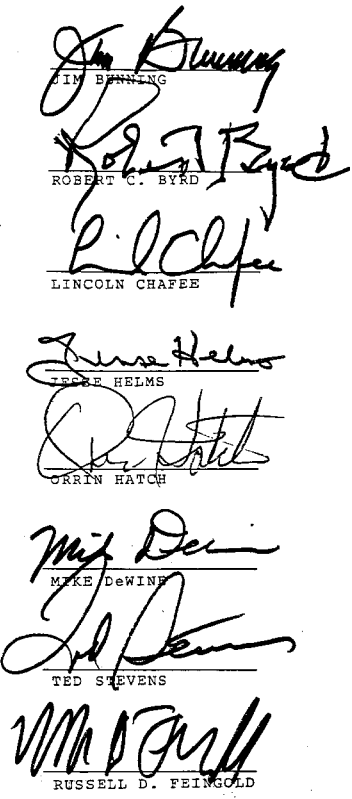 Jim Bunning
JIM BUNNING
Robert C Byrd
ROBERT C. BYRD
Lincoln Chafee
LINCOLN CHAFEE
Jesse Helms
JESSE HELMS
Orrin Hatch
ORRIN HATCH
Mike DeWine
MIKE DeWINE
Ted Stevens
TED STEVENS
RUSSELL D. FEINGOLD